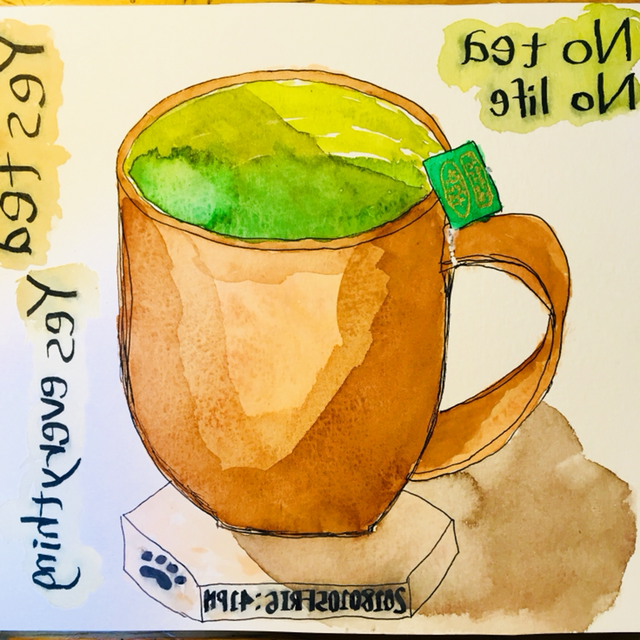 No tea
No life
Yes tea
Yes everything
20180105FRI6:41PM